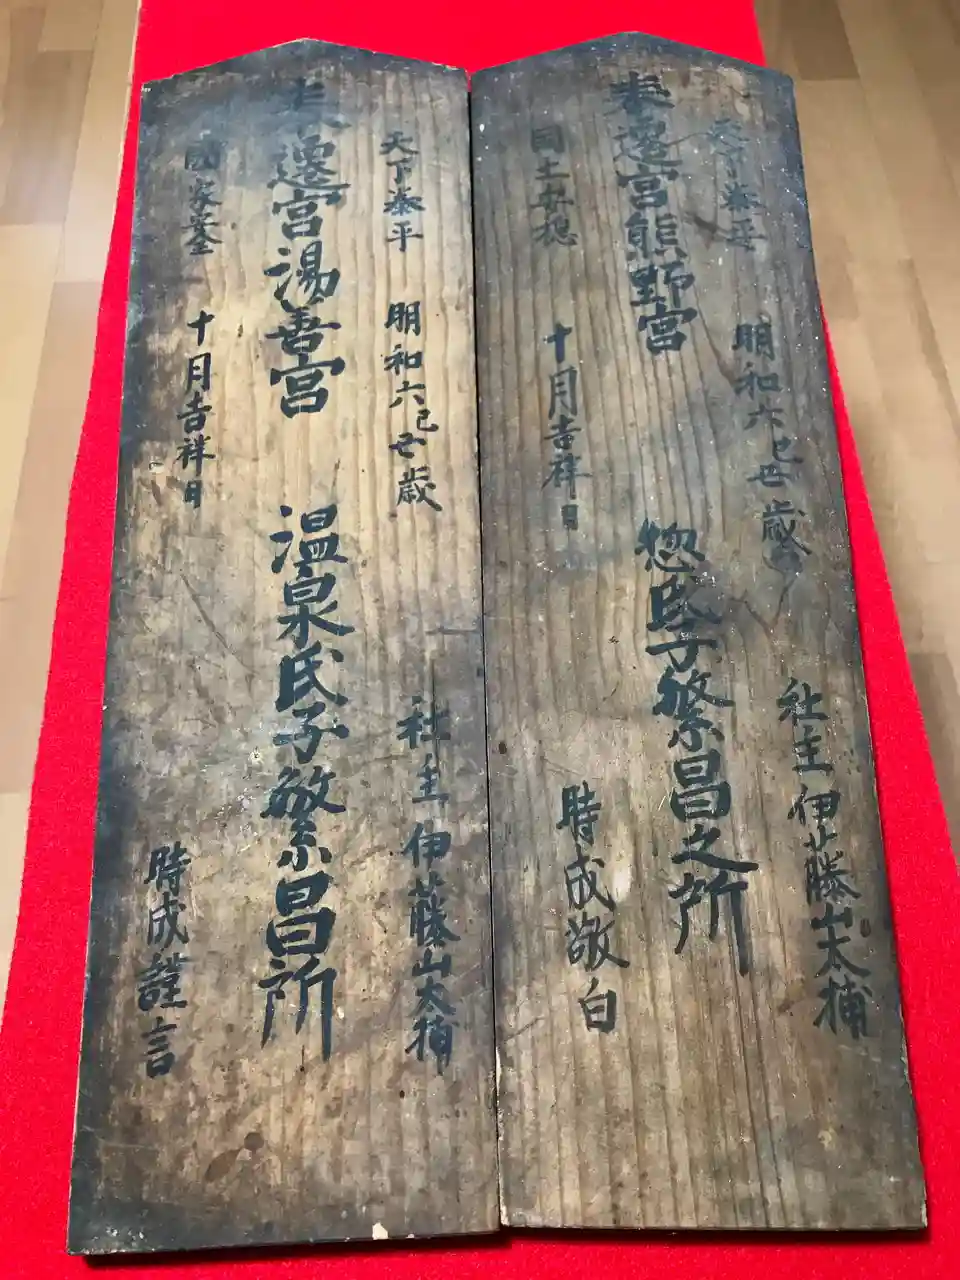 天下泰平 明和六己丑歳 社主伊藤山太捕
奉遷宮熊野宮 惣氏子繁昌之所
国土安穏 十月吉祥日 時成敬白
天下泰平 明和六己丑歳 社主伊藤山太捕
奉遷宮湯善宮 温泉氏子繁昌所
國家安全 十月吉祥日 時成謹言